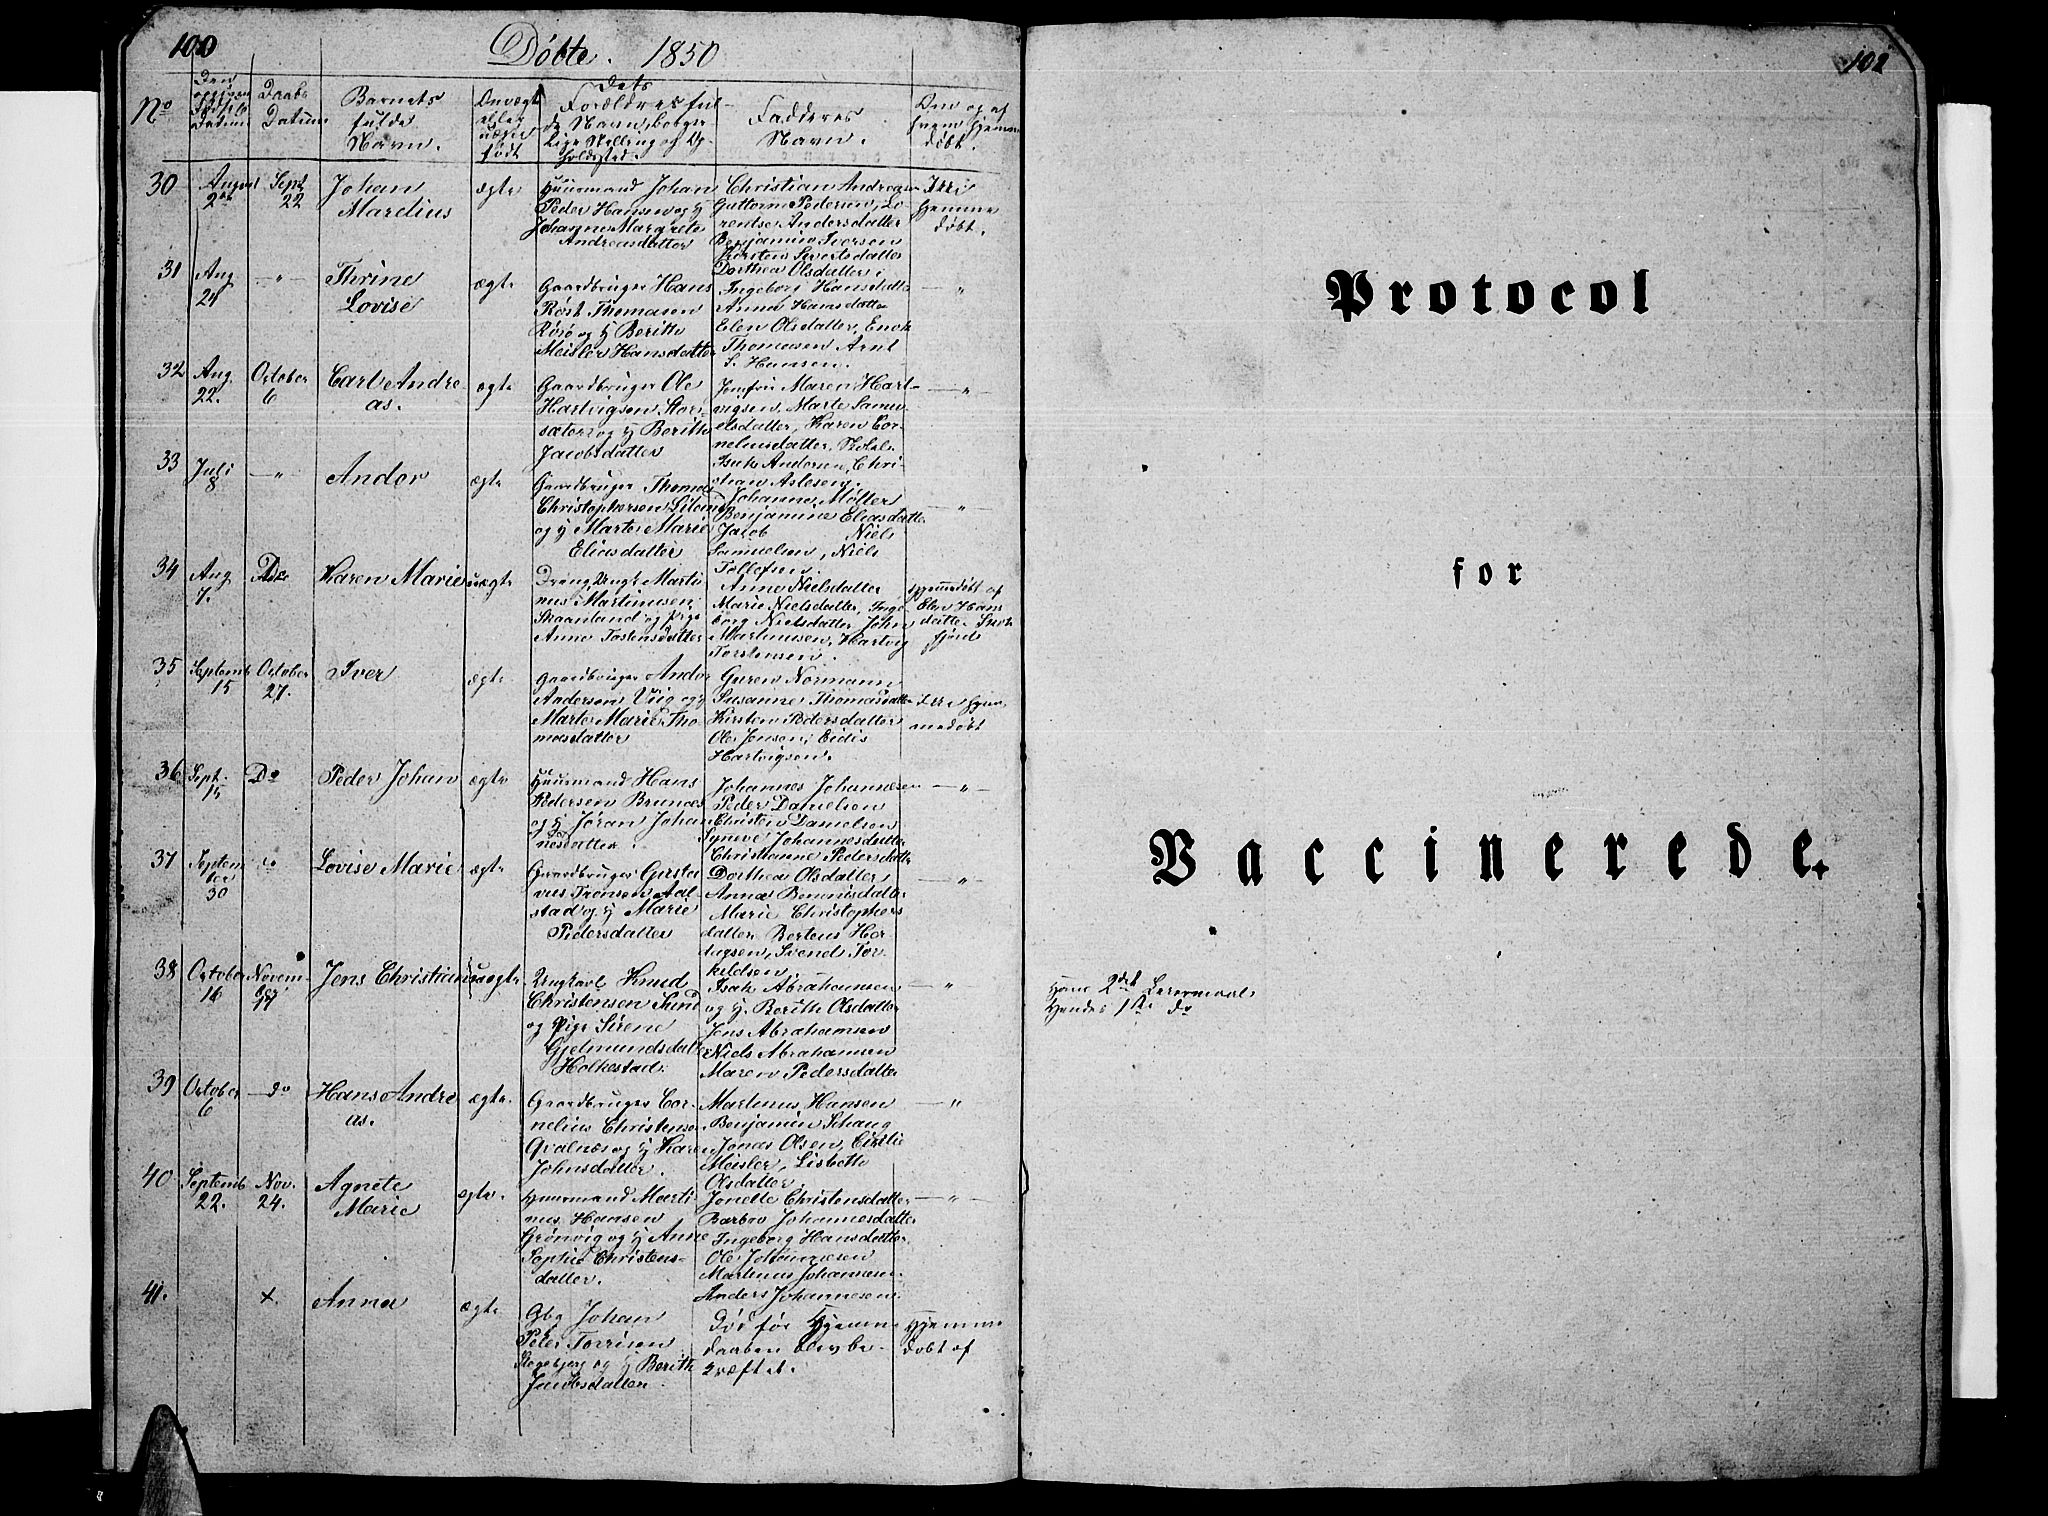 100
Döbte. 1850
No
Den
Datum
Daabs
Datum
Barnets
fulde
Navn.
eller
uægte
født
Dets
Forældres ful-
de Navn, borger-
lige Stilling og Op-
holdssted.
Faddernes
Navn.
Om og af
hvem hjemme
døbt.
30
August
Sept
22
Johan
Mardius
ægte
Huusmand Johan
Peder Hansen og h
Johanne Margrete
Andreasdatter
Christian Andreasen
Guttorm Pedersen, Lo
rentse Andersdatter
Benjamin Iversen
Kirsten Sivertsdatter
Dorthea Olsdatter
Ikke
hjemme
døbt.
31
Aug
24
— " —
Thrine
Lovise
ægte
Gaardbruger Hans
Röst Thomasen
og h Beritte
Meisler Hansdatter
Ingeborg Hansdatter
Anna Hansdatter
Elen Olsdatter, Enok
Thomasen Arnt
S. Hansen.
— " —
32
Aug.
22.
October
6
Carl Andre-
as.
ægte
Gaardbruger Ole
Hartvigsen Stor-
sæter og h Berith
Jacobsdatter
Jomfru Maren Hart-
vigsen, Marte Samu-
elsdatter, Karen Cor-
neliusdatter,
Isak Andersen, Chri-
stian Aslesen.
— " —
33
Juli
8
— " —
Andor
ægte
Gaardbruger Thomas
Christophersen
og h Marte Marie
Eliasdatter
Johanna Møller
Benjamine Eliasdatter
Jacob Niels
Samuelsen, Niels
Tollefsen.
— " —
34
Aug.
7.
Do
Karen Marie
uægte
Dreng Ungk Marti
nus Martinusen
Skaanland og Pige
Anne Tostensdatter
Anne Nielsdatter
Marie Nielsdatter, Inge
borg Nielsdatter John
Martinusen, Hartvig
Torstensen.
Hjemmedøbt af
Elen Hans
datter
fjord
35
Septemb
15
October
27.
Iver
ægte
Gaardbruger Andor
Andersen Viig og h
Marte Marie Tho
masdatter
Guren Normann
Susanne Thomasdatter
Kirsten Pedersdatter
Ole Jensen, Eidis
Hartvigsen.
Ikke hjem
medøbt
36
Sept.
15
Do
Peder Johan
ægte
Huusmand Hans
Pedersen Brunæs
og h Jøran Johan
nesdatter.
Johannes Johannesen
Peder Danielsen
Christen Danielsen
Synnve Johannesdatter
Christianne Pedersdatter
— " —
37
Septem
ber
30
do
Lovise Marie
ægte
Gaardbruger Gusta
ves Tronsen Aal-
stad og h Marie
Pedersdatter
Dorthea Olsdatter
Anna Benonisdatter
Marie Christophers
datter Berteus Hor
dagsen, Svend Tor
kildsen
— " —
38
October
16
Novem-
ber
17
Jens Christian
uægte
Ungkarl Knud
Christensen Sund
og Pige Sirene
Gjelmundsdatter
Holkestad.
Isak Abrahamsen
og h. Berith Olsdatter
Jens Abrahamsen
Niels Abrahamsen
Maren Pedersdatter
— "
Hans 2det Leiermaal.
Hendes 1ste do
39
October
6
— do
Hans Andre
as.
ægte.
Gaardbruger Cor-
nelius Christensen
Qvalnæs og h Karen
Johnsdatter.
Martinus Hansen
Benjamin Schaug
Jonas Olsen, Cicilie
Meisler, Lisbeth
Olsdatter.
— "
40
Septemb
22.
Nov.
24.
Agnete
Marie
ægte.
Huusmand Marti
nus Hansen
Grönvig og h Anne
Sophie Christens-
datter.
Jonette Christensdatter
Barbro Johannesdatter
Ingeborg Hansdatter
Ole Johannesen
Martinus Johannesen
Anders Johannesen
— " —
41.
x.
Anna
ægte
Gbg Johan
Peter Torrisen
og h Berith
Jacobsdatter
Död før Hjemme
daaben blev be-
kræftet.
Hjemme
døbt af
102
Protocol
for
Vaccinerede.